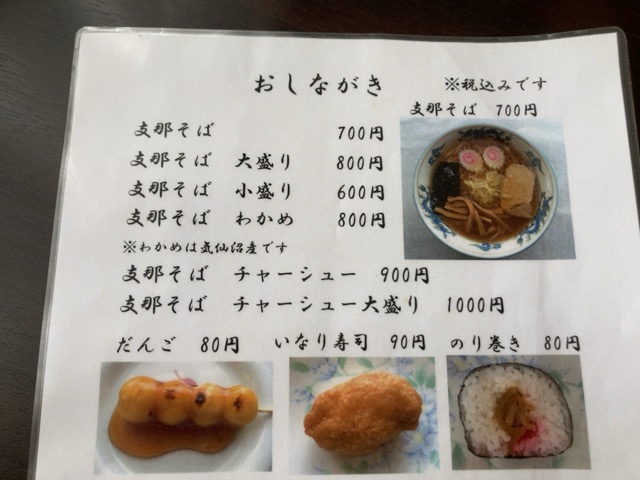 おしながき ※税込みです
支那そば 700円
支那そば 700円
支那そば 大盛り 800円
支那そば 小盛り 600円
支那そば わかめ 800円
※わかめは気仙沼産です
支那そば チャーシュー 900円
支那そば チャーシュー大盛り 1000円
だんご 80円 いなり寿司 90円 のり巻き 80円